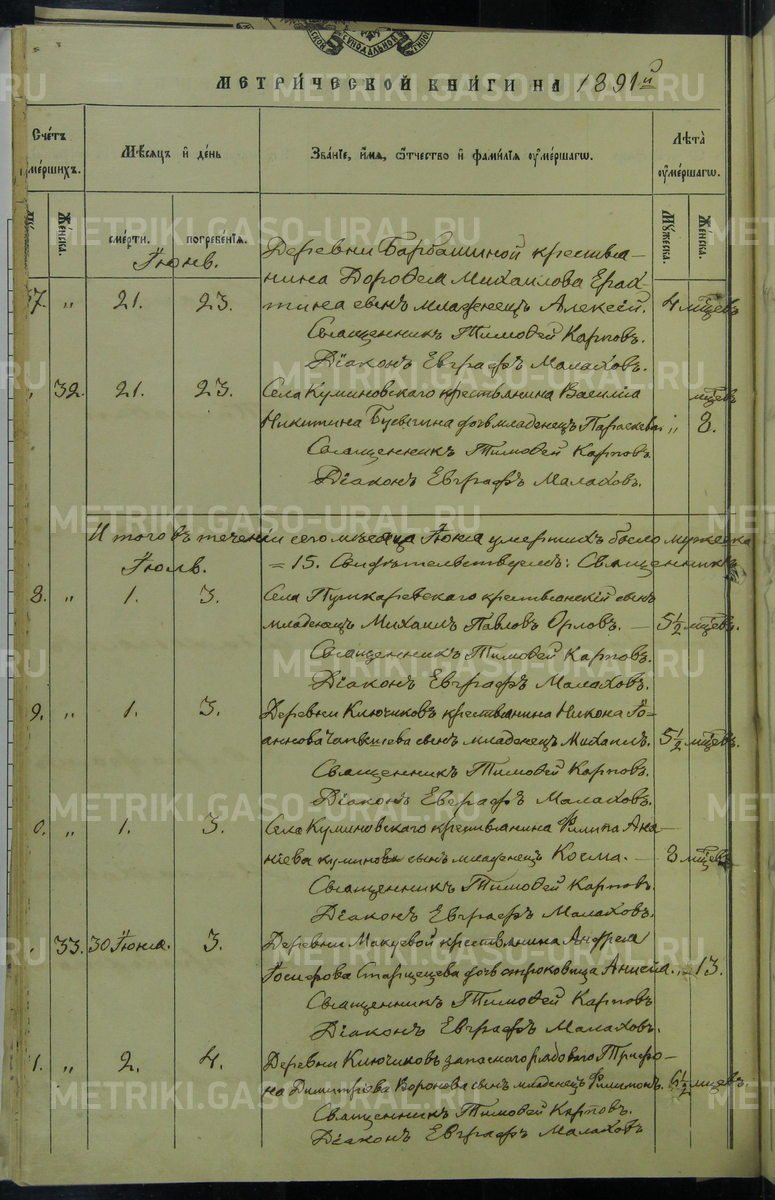 МЕТРИ́ЧЕСКОЙ КНИ́ГИ НА 1891й
Счéтъ мéршихъ.
Мѣсяцъ и дéнь
Звáніе, и́мя, ѻ́тчество и фамíлія ᲂумéршагѡ.
Лѣтà ᲂумéршагѡ.
Жéнска.
смéрти.
погребéнія.
Мýжеска.
Жéнска.
Іюнь.
Деревни Барбашиной крестья-
нина Дорофея Михаилова Ерах-
37. " 21. 23. тина сынъ младенецъ Алексій. 4 мѣцевъ
Священникъ Тимофей Карповъ.
Діаконъ Евграфъ Малаховъ.
32. 21. 23. Села Куминовскаго крестьянина Василія мѣцев
Никитина Бусыгина дочь младенецъ Параскева. " 8.
Священникъ Тимофей Карповъ.
Діаконъ Евграфъ Малаховъ.
Итого въ теченіи сего мѣсяца Іюня умершихъ было мужеска
= 15. Свидѣтельствуемъ: Священникъ
Іюль.
8. " 1. 3. Села Пушкаревскаго крестьянскій сынъ
младенецъ Михаилъ Павловъ Орловъ. — 5½ мѣцевъ.
Священникъ Тимофей Карповъ.
Діаконъ Евграфъ Малаховъ.
9. " 1. 3. Деревни Ключиковъ крестьянина Никона Іо-
аннова сынъ младенецъ Михаилъ. 5½ мѣцевъ.
Священникъ Тимофей Карповъ.
Діаконъ Евграфъ Малаховъ.
0. " 1. 3. Села Куминовскаго крестьянина Филипа Ана-
ніева Куминова сынъ младенец Косма. — 3 мѣцев
Священникъ Тимофей Карповъ.
Діаконъ Евграфъ Малаховъ.
33. 30 Іюня. 3. Деревни Макуевой крестьянина Андрея
Іосифова Старцева дочь отроковица Анисія. " 13.
Священникъ Тимофей Карповъ
Діаконъ Евграфъ Малаховъ.
1. " 2. 4. Деревни Ключиковъ запаснаго рядового Трифо-
на Димитріева Воронова сынъ младенец Филимонъ. 6½ мѣцевъ.
Священникъ Тимофей Карповъ.
Діаконъ Евграфъ Малаховъ
METRIKI.GASO-URAL.RU